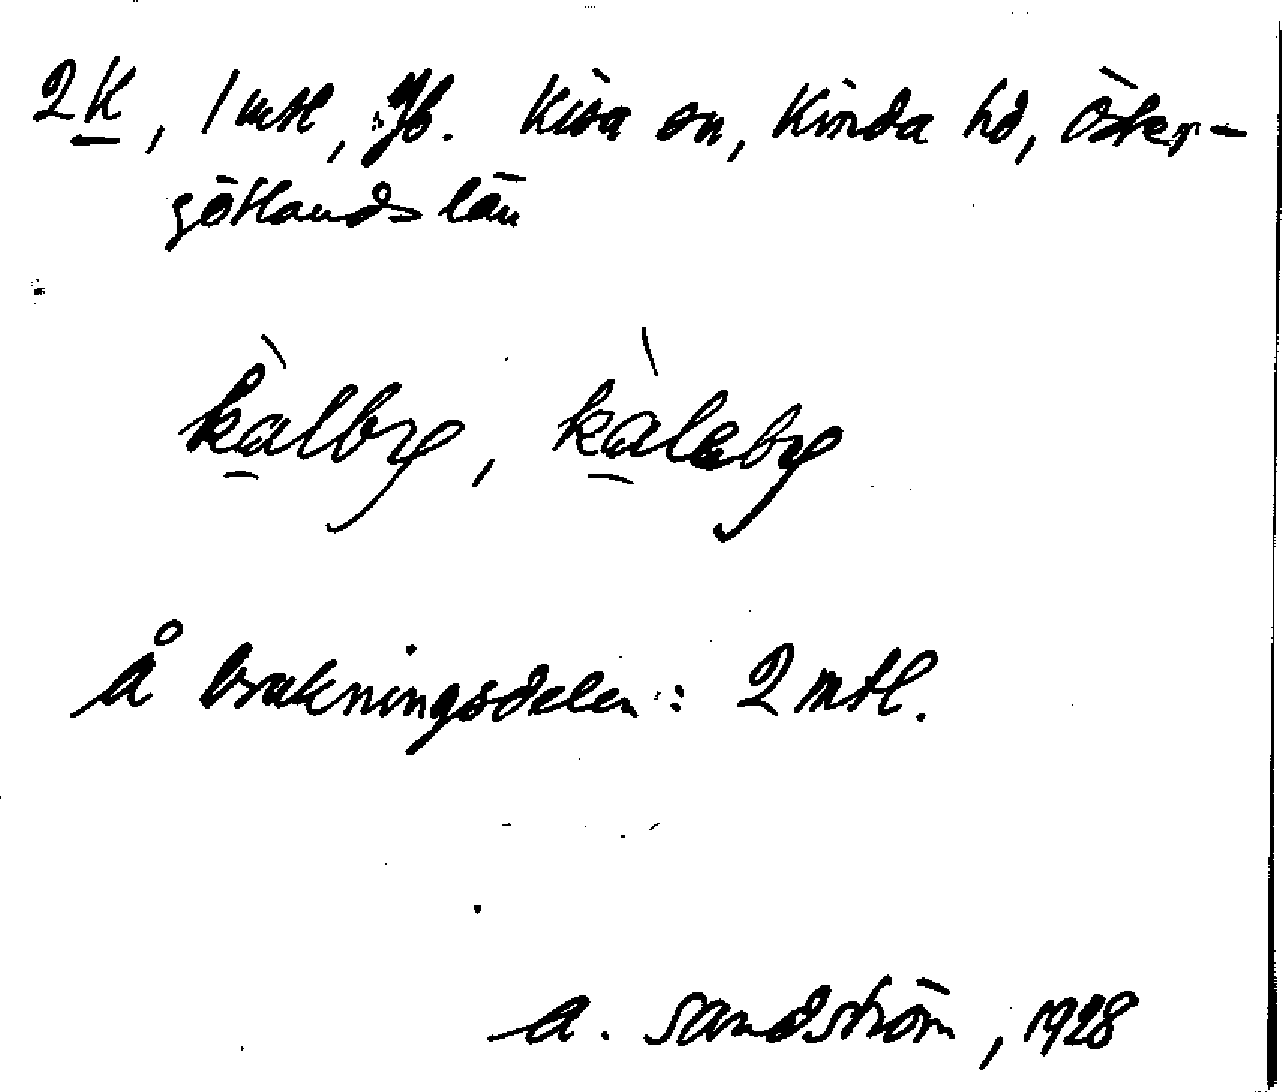 2 K, 1 mtl, Jb. Kisa sn, Kinda hd, Öster-
götlands län
kàlby, kàlaby
Å brukningsdelen: 2 mtl.
A. Sandström, 1928